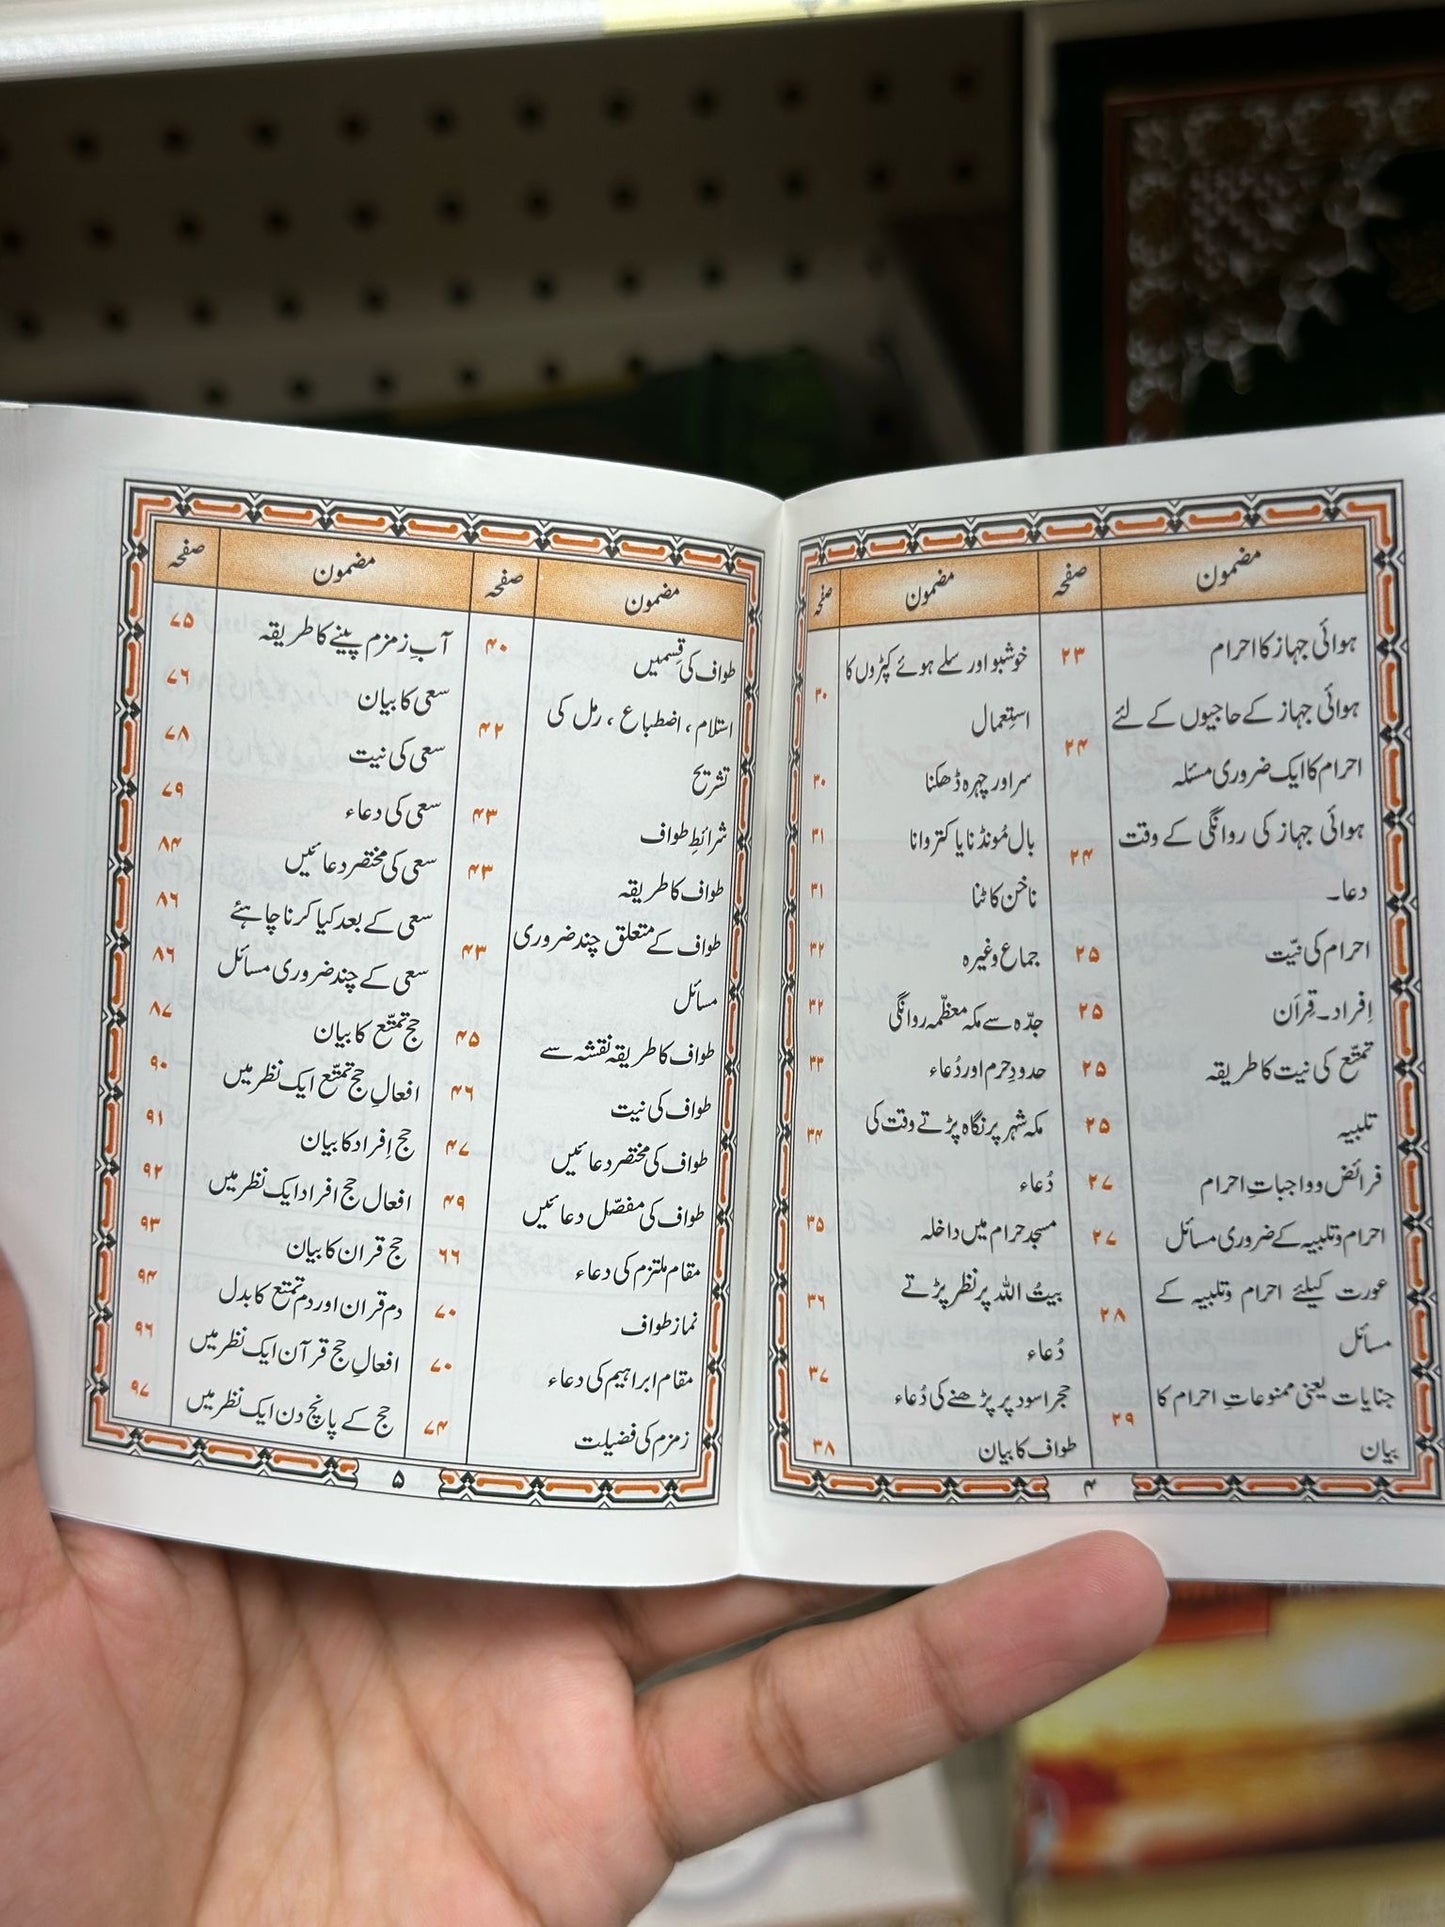 مضمون
صفحہ
ہوائی جہاز کا احرام
۲۳
ہوائی جہاز کے حاجیوں کے لئے
احرام کا ایک ضروری مسئلہ
۲۴
ہوائی جہاز کی روانگی کے وقت
دعا۔
۲۴
احرام کی نیّت
۲۵
اِفراد۔ قِرآن
۲۵
تمتّع کی نیت کا طریقہ
۲۵
تلبیہ
۲۵
فرائض و واجباتِ احرام
۲۷
احرام و تلبیہ کے ضروری مسائل
۲۷
عورت کیلئے احرام و تلبیہ کے
مسائل
۲۸
جنایات یعنی ممنوعاتِ احرام کا
بیان
۲۹
مضمون
صفحہ
خوشبو اور سلے ہوئے کپڑوں کا
استعمال
۳۰
سر اور چہرہ ڈھکنا
۳۰
بال مُونڈنا یا کتروانا
۳۱
ناخن کاٹنا
۳۱
جماع وغیرہ
۳۲
جدّہ سے مکہ معظّمہ روانگی
۳۲
حدودِ حرم اور دُعاء
۳۳
مکہ شہر پر نگاہ پڑتے وقت کی
دُعاء
۳۴
مسجد حرام میں داخلہ
۳۵
بیتُ اللہ پر نظر پڑتے
دُعاء
۳۶
حجر اسود پر پڑھنے کی دُعاء
۳۷
طواف کا بیان
۳۸
۴
مضمون
صفحہ
طواف کی قِسمیں
۴۰
استلام ، اضطباع ، رمل کی
تشریح
۴۲
شرائطِ طواف
۴۳
طواف کا طریقہ
۴۳
طواف کے متعلق چند ضروری
مسائل
۴۳
طواف کا طریقہ نقشہ سے
۴۵
طواف کی نیت
۴۶
طواف کی مختصر دعائیں
۴۷
طواف کی مفصّل دعائیں
۴۹
مقام ملتزم کی دعاء
۶۶
نماز طواف
۷۰
مقام ابراہیم کی دعاء
۷۰
زمزم کی فضیلت
۷۴
مضمون
صفحہ
آبِ زمزم پینے کا طریقہ
۷۵
سعی کا بیان
۷۶
سعی کی نیت
۷۸
سعی کی دعاء
۷۹
سعی کی مختصر دعائیں
۸۴
سعی کے بعد کیا کرنا چاہئے
۸۶
سعی کے چند ضروری مسائل
۸۶
حج تمتّع کا بیان
۸۷
افعالِ حج تمتّع ایک نظر میں
۹۰
حج اِفراد کا بیان
۹۱
افعال حج افراد ایک نظر میں
۹۲
حج قران کا بیان
۹۳
دم قران اور دم تمتع کا بدل
۹۴
افعالِ حج قرآن ایک نظر میں
۹۶
حج کے پانچ دن ایک نظر میں
۹۷
۵